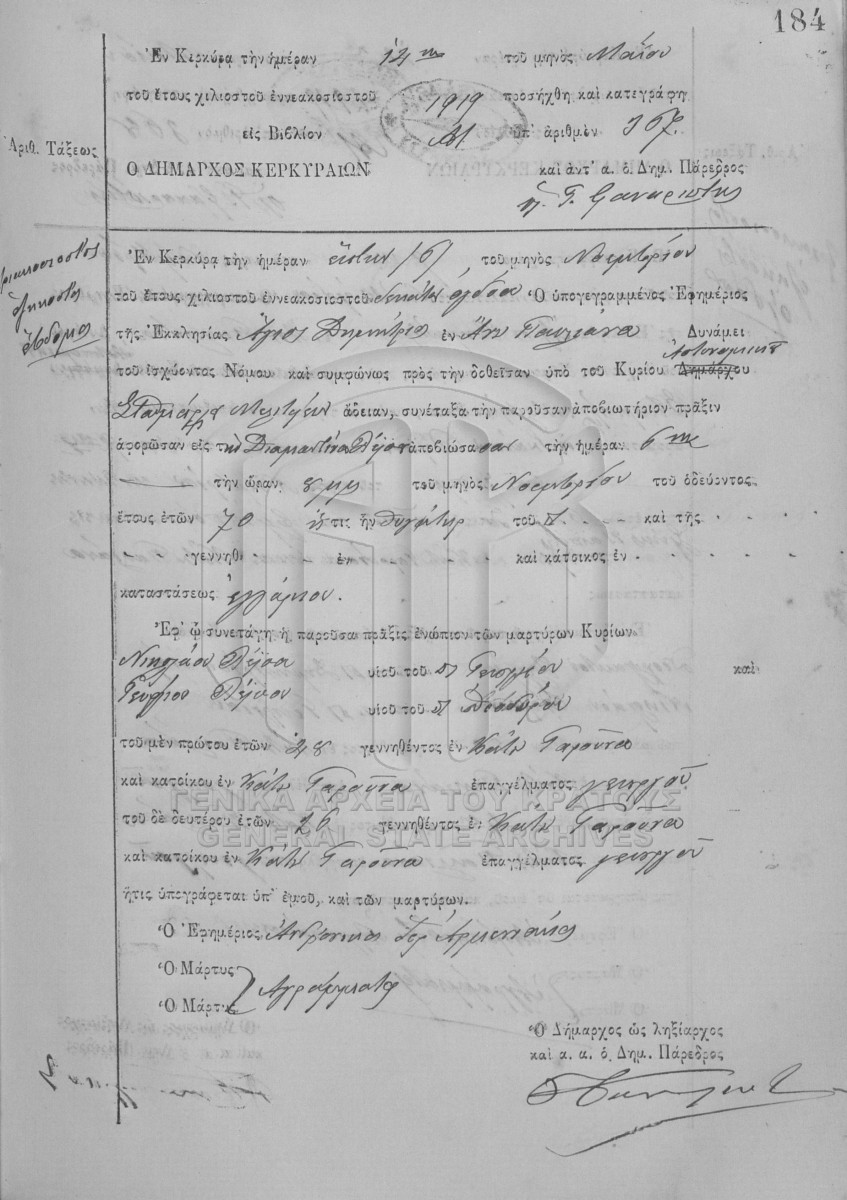 184
Ἐν Κερκύρᾳ τὴν ἡμέραν 12ην τοῦ μηνὸς Μαΐου
τοῦ ἔτους χιλιοστοῦ ἐννεακοσιοστοῦ 1919 προσήχθη καὶ κατεγράφη
εἰς Βιβλίον ὑπ' ἀριθμὸν 367
Ἀριθ. Τάξεως
Ὁ ΔΗΜΑΡΧΟΣ ΚΕΡΚΥΡΑΙΩΝ καὶ ἀντ' α. ὁ. Δημ. Πάρεδρος
Ἐν Κερκύρᾳ τὴν ἡμέραν ἕκτην /6/ τοῦ μηνὸς Νοεμβρίου
τριακοσιοστὸς
ἑξηκοστὸς
ἕβδομος
τοῦ ἔτους χιλιοστοῦ ἐννεακοσιοστοῦ δεκάτου ὀγδόου Ὁ ὑπογεγραμμένος Ἐφημέριος
τῆς Ἐκκλησίας Ἅγιος Δημήτριος ἐν Ἄνω Παυλιάνα Δυνάμει
τοῦ ἰσχύοντος Νόμου καὶ συμφώνως πρὸς τὴν δοθεῖσαν ὑπὸ τοῦ Κυρίου Δημάρχου Ἀστυνομικοῦ
Σταθμάρχου ἄδειαν, συνέταξα τὴν παροῦσαν ἀποβιωτήριον πρᾶξιν
ἀφορῶσαν εἰς τὴν Διαμαντίνα ἀποβιώσασαν τὴν ἡμέραν 6ην
τὴν ὥραν 8 μμ τοῦ μηνὸς Νοεμβρίου τοῦ ὁδεύοντος
ἔτους ἐτῶν 70 ἥτις ἦν θυγάτηρ τοῦ καὶ τῆς
γεννηθ ἐν καὶ κάτοικος ἐν
καταστάσεως ἐγγάμου.
Ἐφ' ᾧ συνετάγη ἡ παροῦσα πρᾶξις ἐνώπιον τῶν μαρτύρων Κυρίων
Νικολάου υἱοῦ τοῦ Γεωργίου καὶ
Γεωργίου υἱοῦ τοῦ Θεοδώρου
τοῦ μὲν πρώτου ἐτῶν 28 γεννηθέντος ἐν Κάτω Γαρούνα
καὶ κατοίκου ἐν Κάτω Γαρούνα ἐπαγγέλματος γεωργοῦ
ΓΕΝΙΚΑ ΑΡΧΕΙΑ ΤΟΥ ΚΡΑΤΟΥΣ
τοῦ δὲ δευτέρου ἐτῶν 26 γεννηθέντος ἐν Κάτω Γαρούνα
GENERAL STATE ARCHIVES
καὶ κατοίκου ἐν Κάτω Γαρούνα ἐπαγγέλματος γεωργοῦ
ἥτις ὑπογράφεται ὑπ' ἐμοῦ, καὶ τῶν μαρτύρων.
Ὁ Ἐφημέριος
Ὁ Μάρτυς
Ἀγράμματοι
Ὁ Μάρτυς
Ὁ Δήμαρχος ὡς ληξίαρχος
καὶ α. α. ὁ. Δημ. Πάρεδρος